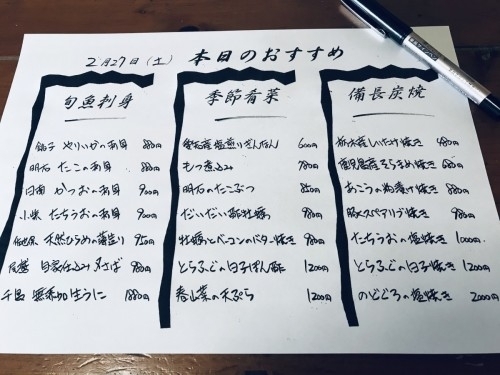 2月27日(土) 本日のおすすめ
旬魚刺身
銚子 やりいかのお造り 880円
明石 たこのお造り 880円
かつおのお造り 900円
小柴 たちうおのお造り 900円
天然ひらめの薄造り 950円
自家仕込み 〆さば 980円
千島 無添加生うに 1880円
季節肴菜
愛知産 塩煎りぎんなん 600円
もつ煮込み 780円
明石のたこぶつ 850円
だいだい酢牡蠣 980円
牡蠣とベーコンのバター焼き 980円
とらふぐの白子ぽん酢 1200円
春山菜の天ぷら 1200円
備長炭焼
栃木産しいたけ焼き 480円
鹿児島産そらまめ焼き 680円
あこうの粕漬け焼き 880円
豚スペアリブ焼き 980円
たちうおの塩焼き 1000円
とらふぐの白子焼き 1200円
のどぐろの塩焼き 2000円